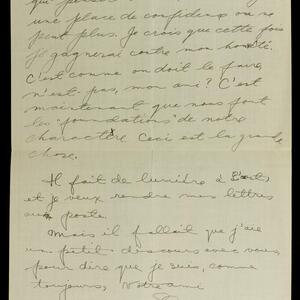 qui
une place de confidence on ne
peut plus. Je crois que cette fois
je gagnerai contre mon honnêté.
C'est comme on doit le faire,
n'est-pas, mon ami? C'est
maintenant que nous font
les "foundations" de notre
charactère Ceci est la grande
chose.
Il fait de lumière à l'est,
et je veux rendre mes lettres
au poste.
Mais il fallait que j'aie
un petit discours avec vous
pour dire que je suis, comme
toujours, Votre ami